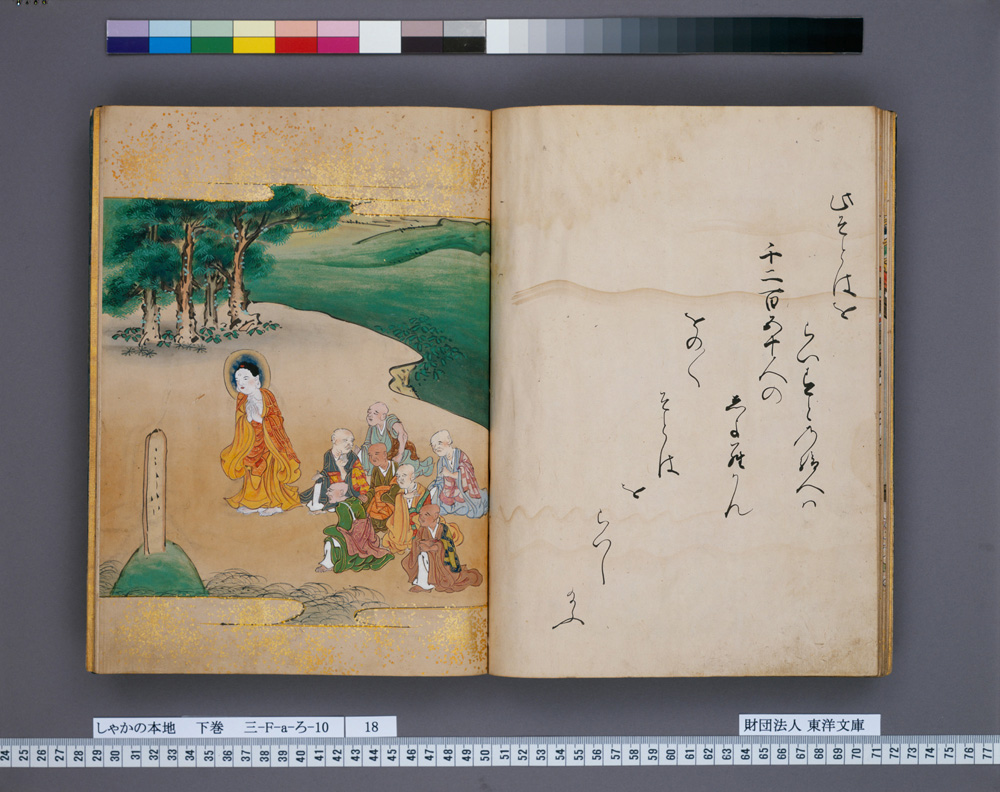 此そとはを
千二百五十人の
をの〳〵
そとは
を
らいし
給ふ
しゃかの本地 下巻 三-F-a-ろ-10
18
財団法人 東洋文庫
24 25 26 27 28 29 30 31 32 33 34 35 36 37 38 39 40 41 42 43 44 45 46 47 48 49 50 51 52 53 54 55 56 57 58 59 60 61 62 63 64 65 66 67 68 69 70 71 72 73 74 75 76 77